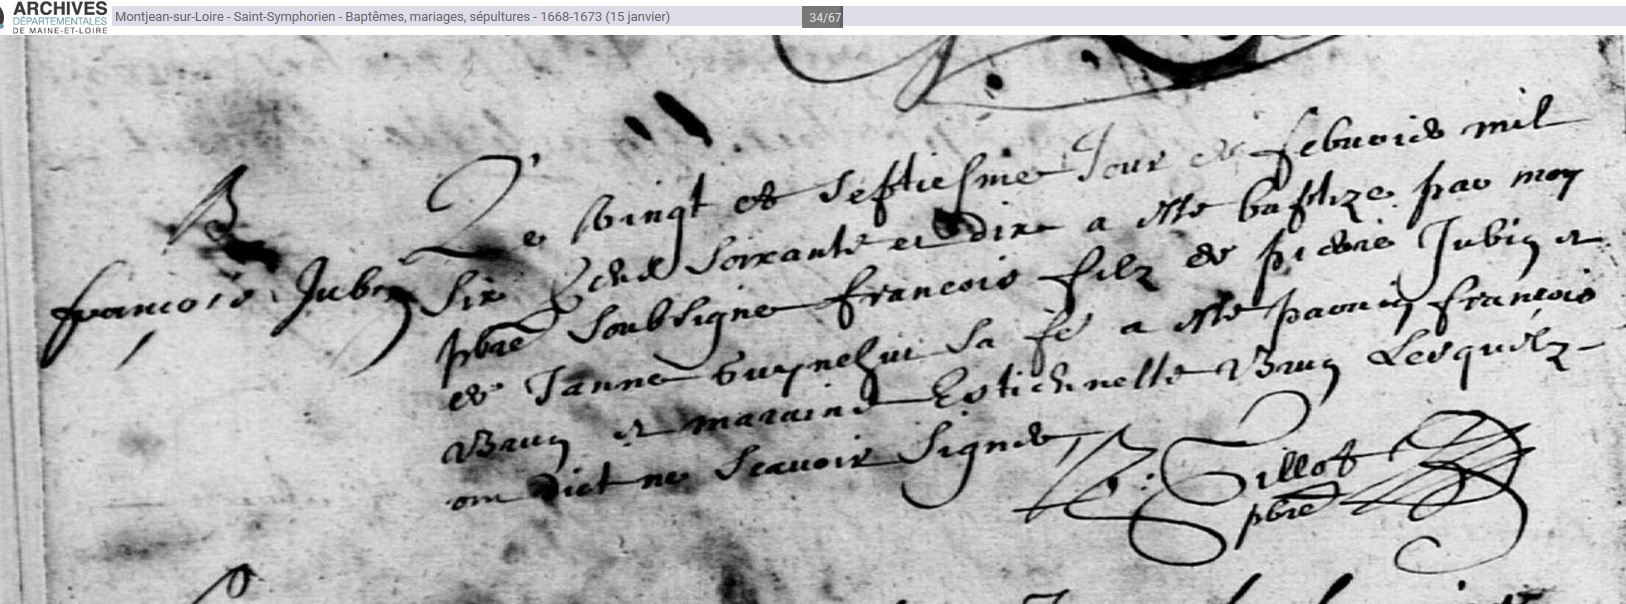 ARCHIVES
DÉPARTEMENTALES
DE MAINE-ET-LOIRE
Montjean-sur-Loire - Saint-Symphorien - Baptêmes, mariages, sépultures - 1668-1673 (15 janvier)
34/67
B
françois Jubin
Le vingt et septiesme Jour de febvrier mil
six cent soixante et dix a esté baptize par moy
pbre soubsigne francois filz de pierre Jubin et
de Janne sa fe a esté parain françois
Brun et maraine Estiennette Brun Lesquelz
ont dict ne scavoir signer
Gillot
pbre